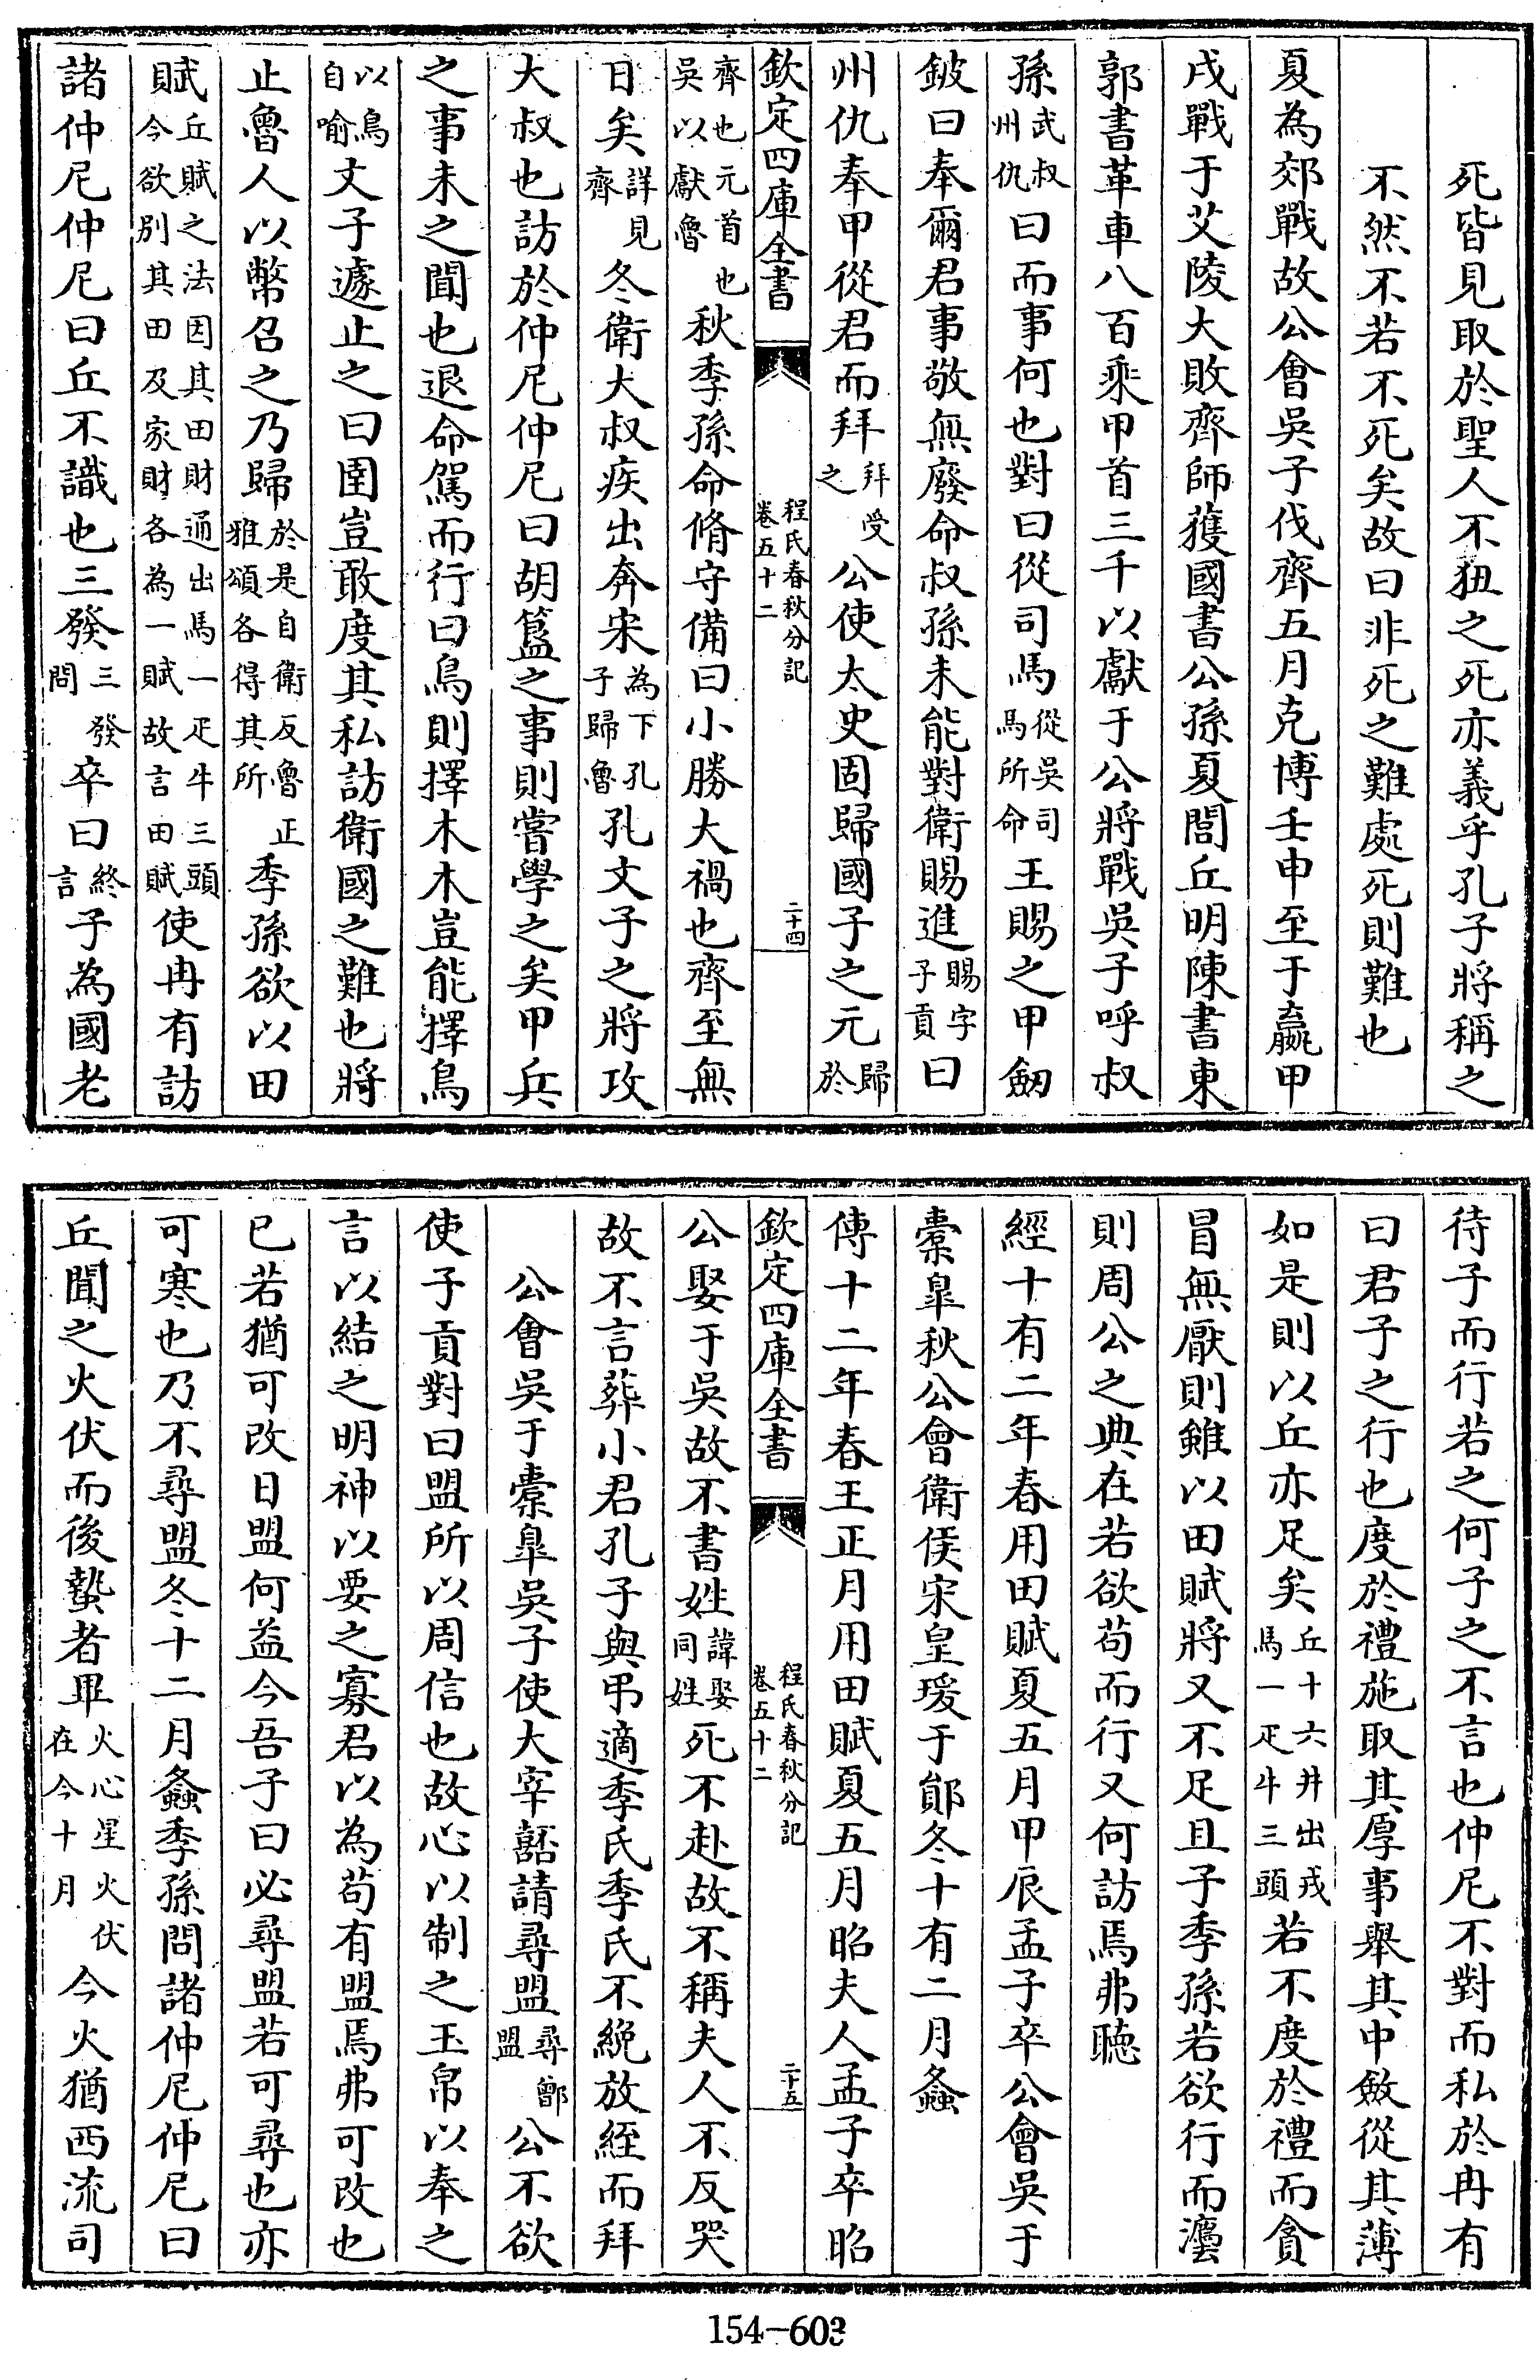 死皆見取於聖人不狃之死亦義乎孔子將稱之
不然不若不死矣故曰非死之難處死則難也
夏為郊戰故公會吳子伐齊五月克博壬申至于嬴甲
戌戰于艾陵大敗齊師獲國書公孫夏閭丘明陳書東
郭書革車八百乘甲首三千以獻于公將戰吳子呼叔
孫武叔州仇曰而事何也對曰從司馬從吳司馬所命王賜之甲劒
鈹曰奉爾君事敬無廢命叔孫未能對衛賜進賜字子貢曰
州仇奉甲從君而拜拜受之公使太史固歸國子之元歸於
欽定四庫全書
程氏春秋分記
卷五十二
二十四
齊也元首也吳以獻魯秋季孫命脩守備曰小勝大禍也齊至無
日矣詳見齊冬衛大叔疾出奔宋為下孔子歸魯孔文子之將攻
大叔也訪於仲尼仲尼曰胡簋之事則嘗學之矣甲兵
之事未之聞也退命駕而行曰鳥則擇木木豈能擇鳥
以鳥自喻文子遽止之曰圉豈敢度其私訪衛國之難也將
止魯人以幣召之乃歸於是自衛反魯正雅頌各得其所季孫欲以田
賦丘賦之法因其田財通出馬一疋牛三頭今欲別其田及家財各為一賦故言田賦使冉有訪
諸仲尼仲尼曰丘不識也三發三發問卒曰終言子為國老
待子而行若之何子之不言也仲尼不對而私於冉有
曰君子之行也度於禮施取其厚事舉其中斂從其薄
如是則以丘亦足矣丘十六井出戎馬一疋牛三頭若不度於禮而貪
冒無厭則雖以田賦將又不足且子季孫若欲行而灋
則周公之典在若欲苟而行又何訪焉弗聽
經十有二年春用田賦夏五月甲辰孟子卒公會吳于
橐皐秋公會衛侯宋皇瑗于鄖冬十有二月螽
傳十二年春王正月用田賦夏五月昭夫人孟子卒昭
欽定四庫全書
程氏春秋分記
卷五十二
二十五
公娶于吳故不書姓諱娶同姓死不赴故不稱夫人不反哭
故不言葬小君孔子與弔適季氏季氏不絻放絰而拜
公會吳于橐皐吳子使大宰嚭請尋盟尋鄫盟公不欲
使子貢對曰盟所以周信也故心以制之玉帛以奉之
言以結之明神以要之寡君以為苟有盟焉弗可改也
已若猶可改日盟何益今吾子曰必尋盟若可尋也亦
可寒也乃不尋盟冬十二月螽季孫問諸仲尼仲尼曰
丘聞之火伏而後蟄者畢火心星火伏在今十月今火猶西流司
154-603